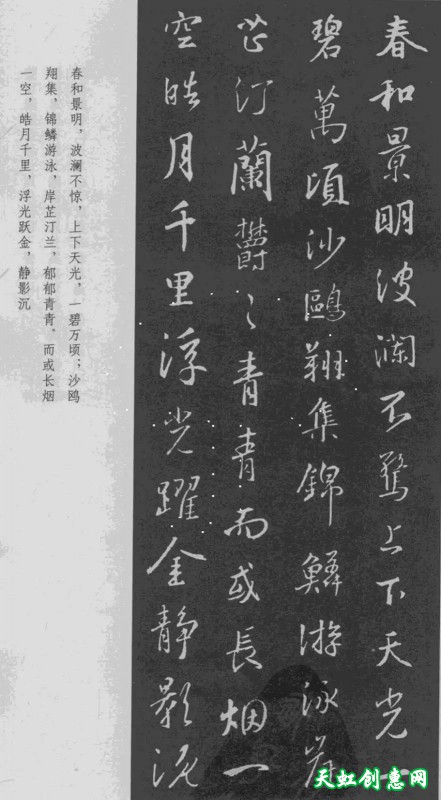 春和景明波澜不驚上下天光一
碧萬頃沙鷗翔集錦鱗游泳岸
芷汀蘭鬱〻青青而或長烟一
空皓月千里浮光躍金静影沉
春和景明，波澜不惊，上下天光，一碧万顷；沙鸥
翔集，锦鳞游泳，岸芷汀兰，郁郁青青。而或长烟
一空，皓月千里，浮光跃金，静影沉
天虹创意网